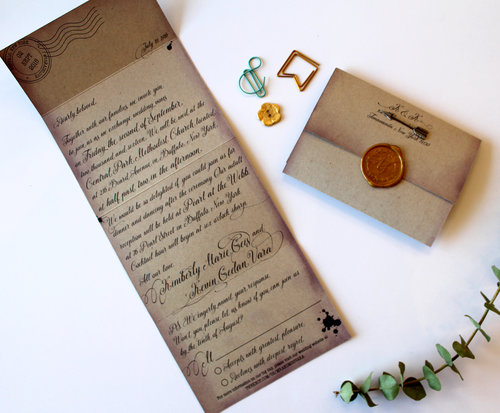 02
SEPT
July 12, 2011
Dearly beloved,
Together with our families, we invite you
to join us as we exchange wedding vows
on Friday, the second of September,
two thousand and sixteen. We will be wed at the
Central Park Methodist Church located
at 216 Beard Avenue in Buffalo, New York
at half past two in the afternoon.
We would be so delighted if you could join us for
dinner and dancing after the ceremony. Our rustic
reception will be held at Pearl at the Webb
at 76 Pearl Street in Buffalo, New York.
Cocktail hour will begin at six o'clock sharp.
All our love,
Kimberly Marie Goss and
Kevin Gedan Vara
P.S. We eagerly await your response.
Won't you please let us know if you can join us
by the tenth of August?
M
Accepts with greatest pleasure,
Declines with deepest regret.
For more information you may visit our wedding website at
K & K
New York